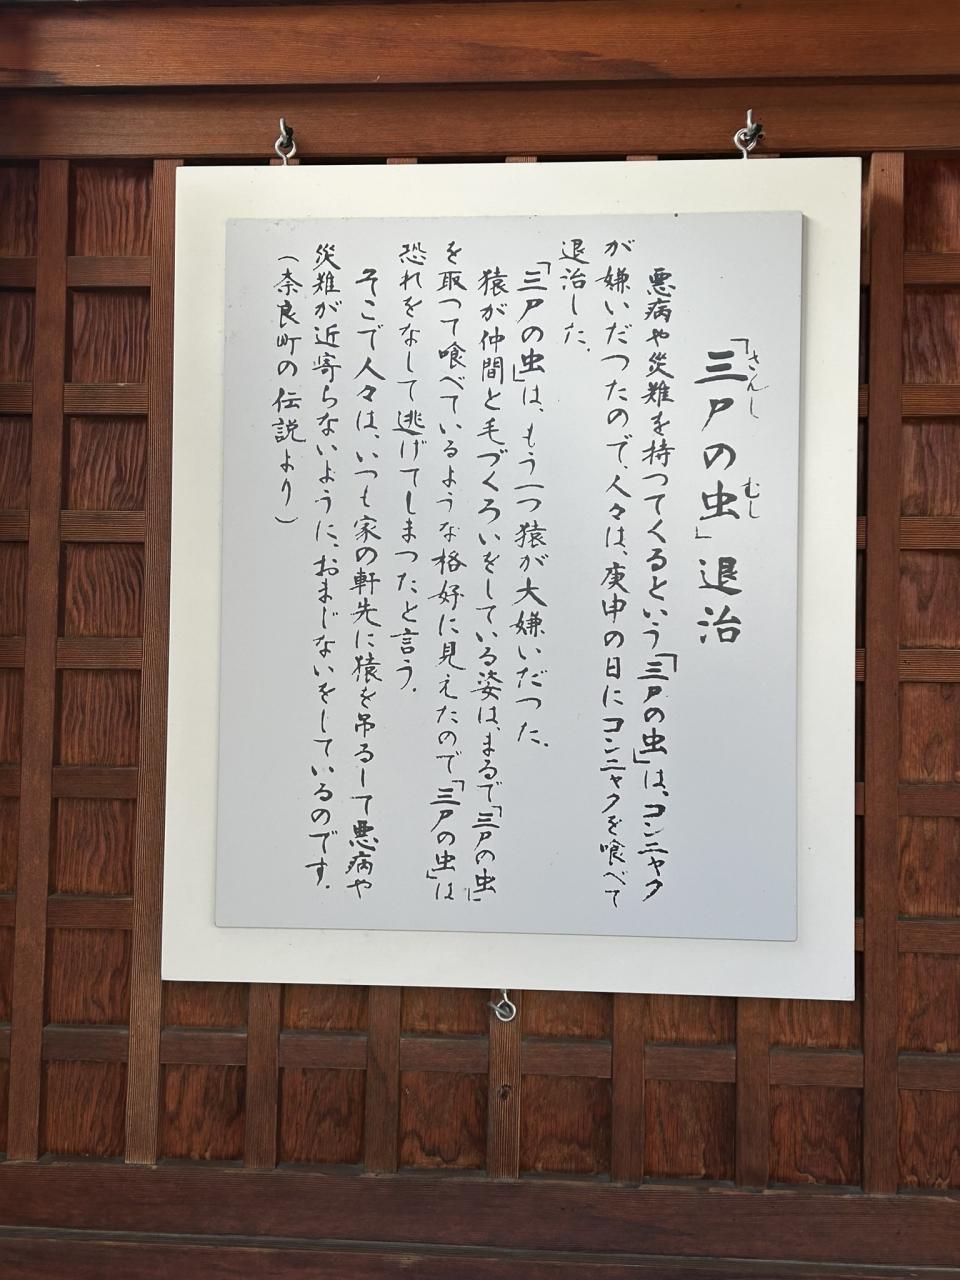 「三尸の虫」退治
さんし
むし
悪病や災難を持つてくるという「三尸の虫」は、コンニャク
が嫌いだつたので、人々は、庚申の日にコンニャクを喰べて
退治した。
「三尸の虫」は、もう一つ猿が大嫌いだつた。
猿が仲間と毛づくろいをしている姿は、まるで「三尸の虫」
を取つて喰べているような格好に見えたので「三尸の虫」は
恐れをなして逃げてしまつたと言う。
そこで人々は、いつも家の軒先に猿を吊るして悪病や
災難が近寄らないように、おまじないをしているのです。
(奈良町の伝説より)